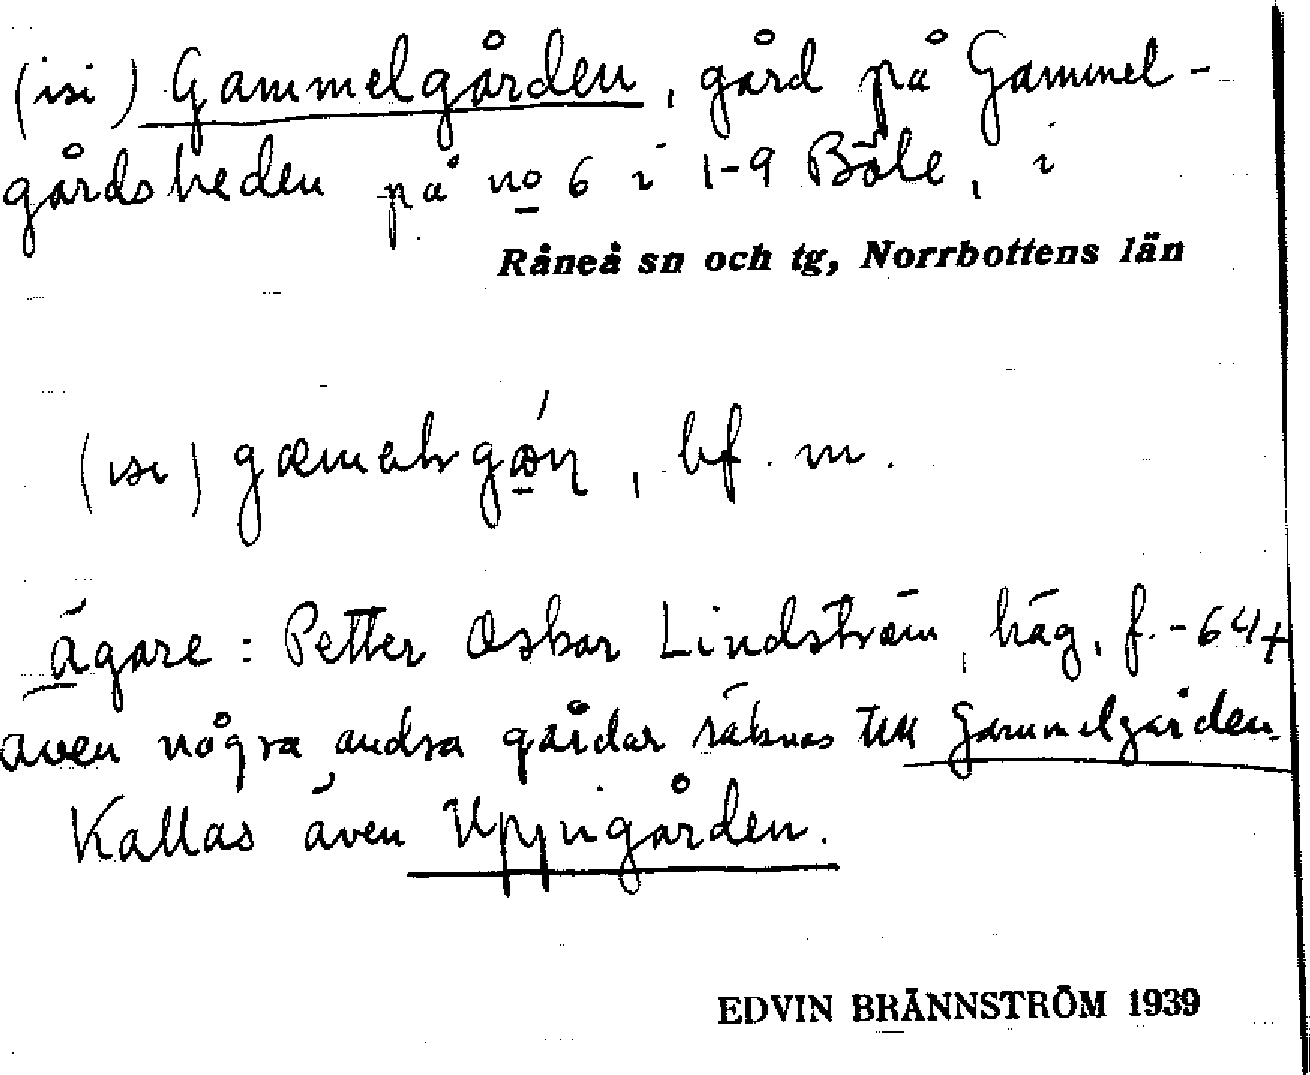 (isi) Gammelgården, gård på Gammel-
gårdsheden på no 6 i 1-9 Böle, i
Råneå sn och tg, Norrbottens län
(isi) , bf. m.
Ägare: Petter Oskar Lindström, häg, f. -64 +
även några andra gårdar räknas till Gammelgården.
Kallas även Uppigården.
EDVIN BRÄNNSTRÖM 1939